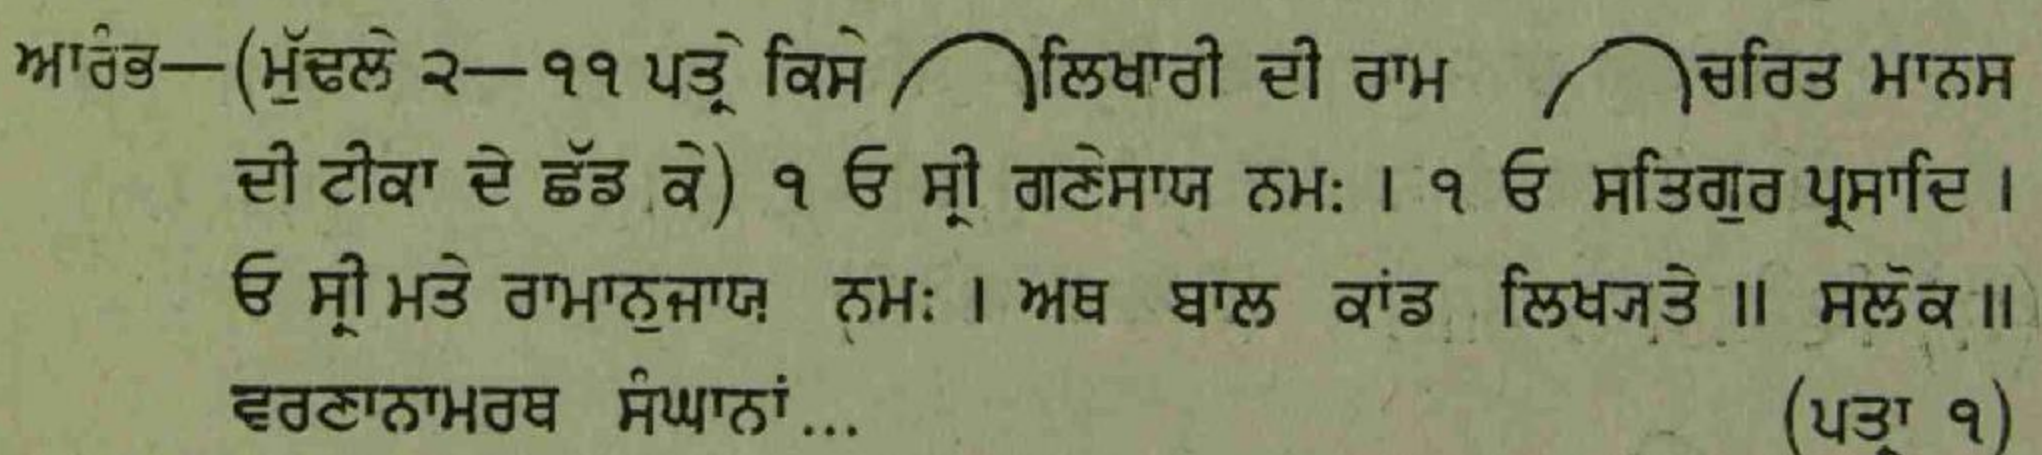 ਆਰੰਭ—(ਮੁੱਢਲੇ ੨—੧੧ ਪਤ੍ਰੇ ਕਿਸੇ ਲਿਖਾਰੀ ਦੀ ਰਾਮ ਚਰਿਤ ਮਾਨਸ
ਦੀ ਟੀਕਾ ਦੇ ਛੱਡ ਕੇ) ੧ ਓ ਸ੍ਰੀ ਗਣੇਸਾਯ ਨਮ: । ੧ ਓ ਸਤਿਗੁਰ ਪ੍ਰਸਾਦਿ ।
ਓ ਸ੍ਰੀ ਮਤੇ ਰਾਮਾਨੁਜਾਯ ਨਮ: । ਅਥ ਬਾਲ ਕਾਂਡ ਲਿਖ੍ਯਤੇ ॥ ਸਲੋਕ ॥
ਵਰਣਾਨਾਮਰਥ ਸੰਘਾਨਾਂ...
(ਪਤ੍ਰਾ ੧)